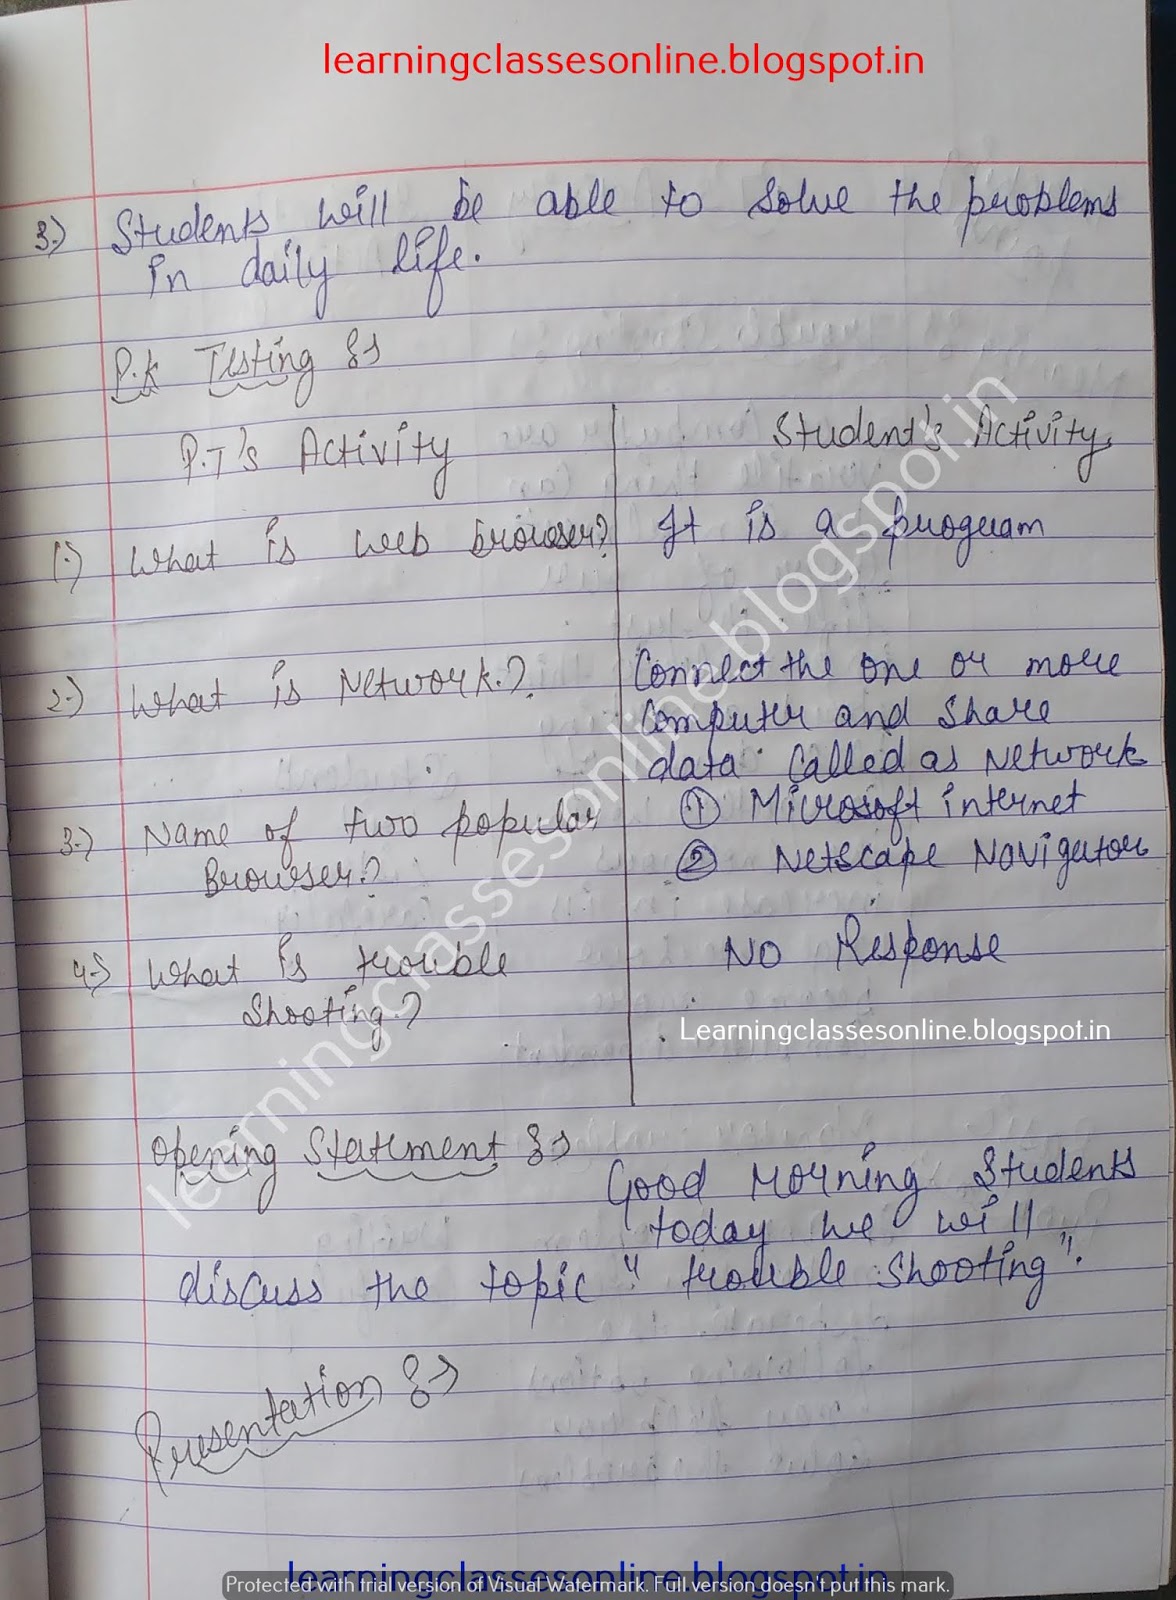 learningclassesonline.blogspot.in
3.) Students will be able to solve the problems
in daily life.
P.K Testing :->
P.T's Activity Student's Activity
1.) What is web browser? It is a program
2.) What is Network.? Connect the one or more
computer and share
data called as Network
3.) Name of two popular ① Microsoft internet
Browser.? ② Netscape Navigator
4.) What is trouble No Response
Shooting.?
Learningclassesonline.blogspot.in
Opening Statement :->
Good Morning Students
today we will
discuss the topic "trouble shooting".
Presentation :->
learningclassesonline.blogspot.in
learningclassesonline.blogspot.in
Protected with trial version of Visual Watermark. Full version doesn't put this mark.